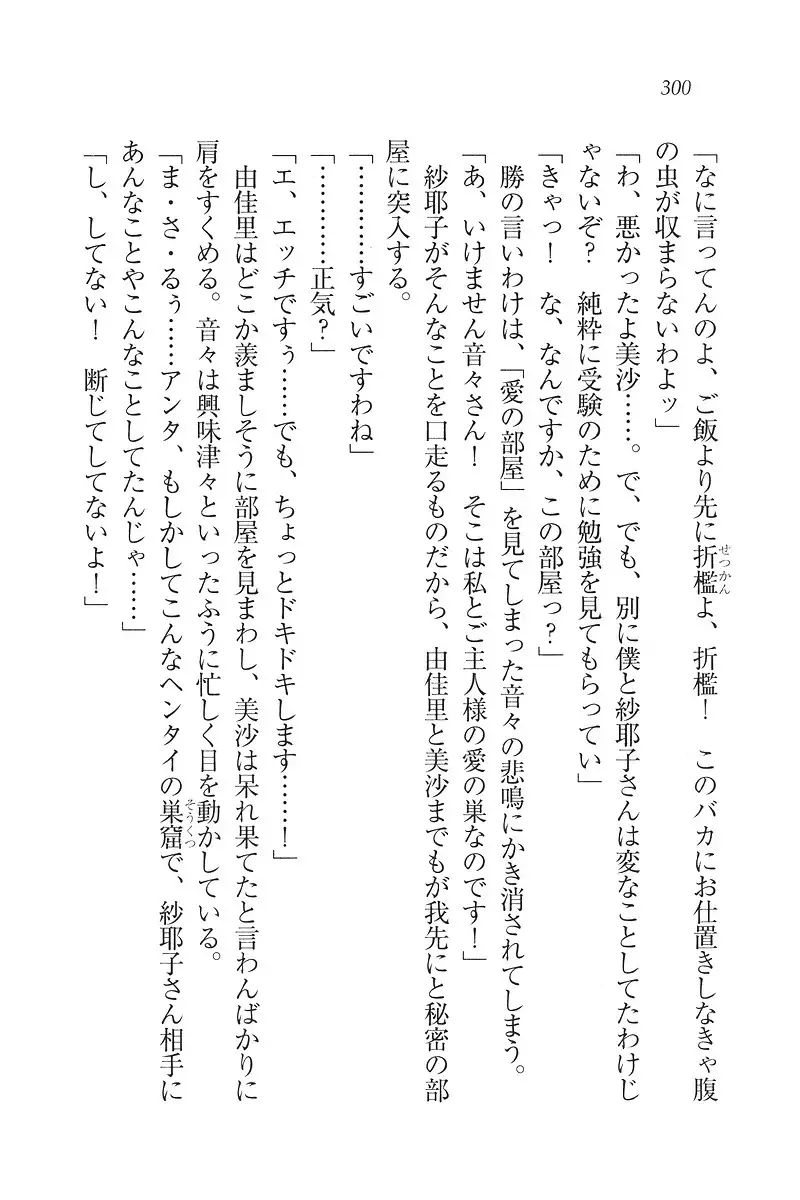 300
「なに言ってんのよ、ご飯より先に折檻よ、折檻！　このバカにお仕置きしなきゃ腹
せっかん
の虫が収まらないわよッ」
「わ、悪かったよ美沙……。で、でも、別に僕と紗耶子さんは変なことしてたわけじ
ゃないぞ？　純粋に受験のために勉強を見てもらってい」
「きゃっ！　な、なんですか、この部屋っ？」
勝の言いわけは、「愛の部屋」を見てしまった音々の悲鳴にかき消されてしまう。
「あ、いけません音々さん！　そこは私とご主人様の愛の巣なのです！」
紗耶子がそんなことを口走るものだから、由佳里と美沙までもが我先にと秘密の部
屋に突入する。
「…………すごいですわね」
「…………正気？」
「エ、エッチですぅ……でも、ちょっとドキドキします……！」
由佳里はどこか羨ましそうに部屋を見まわし、美沙は呆れ果てたと言わんばかりに
肩をすくめる。音々は興味津々といったふうに忙しく目を動かしている。
「ま・さ・るぅ……アンタ、もしかしてこんなヘンタイの巣窟で、紗耶子さん相手に
そうくつ
あんなことやこんなことしてたんじゃ……」
「し、してない！　断じてしてないよ！」